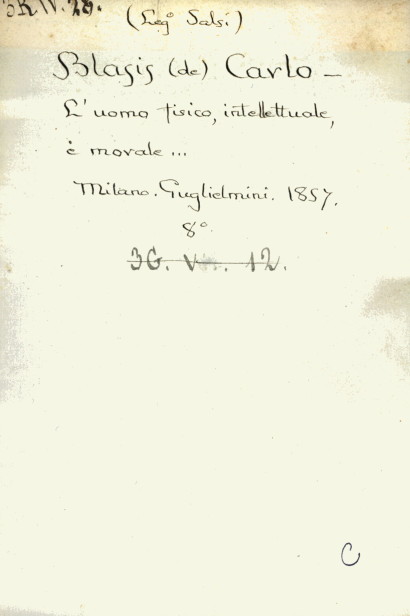 (Leg° Salsi)
Blasis (de) Carlo —
L'uomo fisico, intellettuale,
è morale...
Milano. Guglielmini. 1857.
8°
3G. V 12.
C